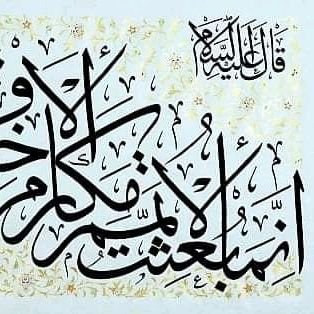 قال عليه السلام
إنما بعثت لأتمم مكارم